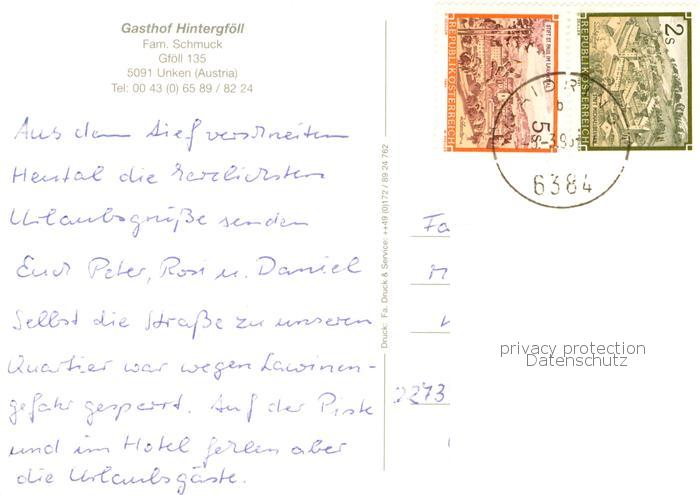 Gasthof Hintergföll
Fam. Schmuck
Gföll 135
5091 Unken (Austria)
Tel: 00 43 (0) 65 89 / 82 24
Aus dem tief verschneiten
Heutal die herzlichsten
Urlaubsgrüße senden
Euch Peter, Rosi u. Daniel
Selbst die Straße zu unserem
Quartier war wegen Lawinen-
gefahr gesperrt. Auf der Piste
und im Hotel fehlen aber
die Urlaubsgäste.
Druck: Fa. Druck & Service: ++49 (0)172 / 89 24 762
REPUBLIK ÖSTERREICH
STIFT ST. PAUL IM LAVANTTAL
5s
REPUBLIK ÖSTERREICH
2s
6384
Fa
privacy protection
Datenschutz
2273